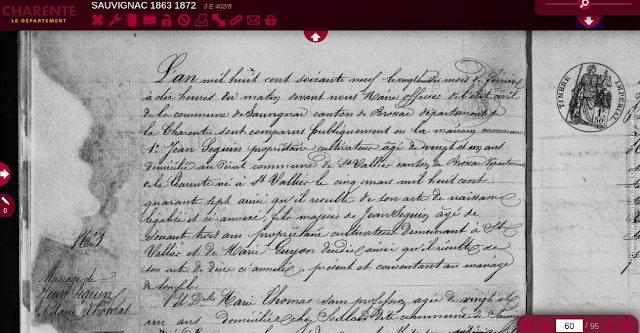 CHARENTE
LE DÉPARTEMENT
SAUVIGNAC 1863 1872 3 E 402/8
TIMBRE IMPERIAL
L'an mil huit cent soixante neuf le vingt du mois de février
à dix heures du matin devant nous Maire officier de l'état civil
de la commune de Sauvignac canton de Brossac département de
la Charente sont comparus publiquement en la maison commune
1° Jean Seguin propriétaire cultivateur âgé de vingt et un ans
domicilié au commune de St Vallier canton de Brossac département
de la Charente né à St Vallier le cinq mars mil huit cent
quarante sept ainsi qu'il résulte de son acte de naissance
légalisé et ci-annexé, fils majeur de Jean Seguin âgé de
soixante trois ans propriétaire cultivateur demeurant à St
Vallier et de Marie Guyon décédée ainsi qu'il résulte de
son acte de décès ci annexé, présent et consentant au mariage
de son fils
N° 1
Mariage de
Jean Seguin
et Marie Thomas
Et Delle Marie Thomas sans profession agée de vingt et
un ans domiciliée chez dite commune de
0
60 / 95